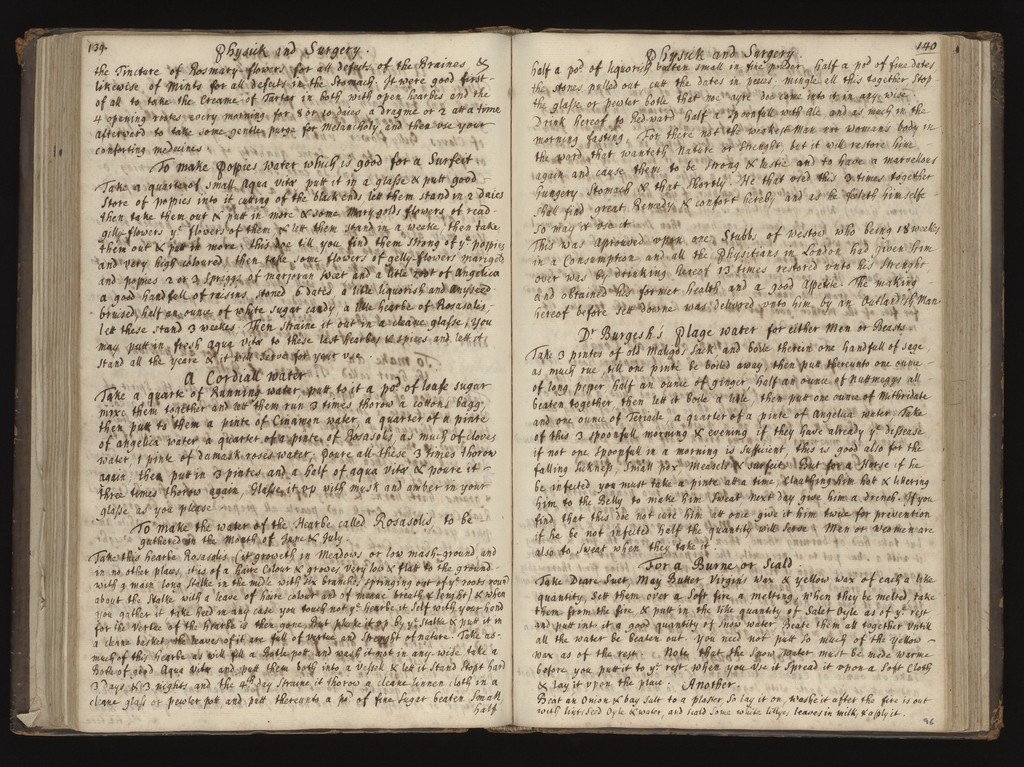 139.
Physick and Surgery.
the Tincture of Rosmary flowers for all defects of the Braines, &
likewise of Mints for all defects in the Stomach. It were good first
of all to take the Creame of Tartar in broth with open hearbes and the
4 opening rootes every morning for 8 or 10 daies a dragme or 2 att a time
afterward to take some gentle purge for Melancholy and then use your
comforting medecines
To make Poppies water which is good for a Surfeit
Take a quarte of small Aqua vitæ putt it in a glasse & putt good
Store of poppies into it cuting of the black ends lett them stand in 2 daies
then take them out & putt in more & some Marygolds flowers of read
gilly flowers ye flowers of them & lett them stand in a weeke then take
them out & put in more, this doe till you find them strong of ye poppies
and very high coloured, then take some flowers of gelly-flowers marigold
and poppies 2 or 3 spriggs of marjoran sweet and a little root of Angelica
a good handfull of raisins stoned 6 dates a litle liquorish and Anyseed
bruised, half an ounce of white sugar candy a litle hearbe of Rosasolis,
let these stand 3 weekes. Then straine it out in a cleane glasse, you
may putt in fresh Aqua vitæ to these last hearbes & spices and lett it
stand all the yeare & it will serve for your use.
A Cordiall water
Take a quarte of Running water, putt to it a po: of loafe sugar
mixe them together and lett them run 3 times thorow a cottons bagg,
then putt to them a pinte of Cinamon water a quarter of a pinte
of angelica water a quarter of a pinte of Rosasolis as much of cloves
water 1 pink of damask roses water, Poure all these 3 times thorow
again, then putt in 3 pintes and a half of aqua vitæ & poure it
three times thorow again, Glasse it up with musk and amber in your
glasse as you please
To make the water of the Hearbe called Rosasolis, to be
gathered on the Month of June & July.
Take this hearbe Rosasolis (it groweth in Meadows or low mash-ground and
in no other places, it is of a haire Colour & growes very low & flatt to the ground
with a main long stalke in the midle with six branches springing out of ye roots round
about the stalke with a leave of haire colour and of meane breath & lenght) & when
you gather it take heed in any case you touch not ye hearbe it self with your hand
for the Vertue of the hearbe is then gone, But pluck it up by ye stalke & putt it in
a cleane basket, the leaves of it are full of vertue and strenght of nature. Take as
much of this hearbe as will fill a Bottle pott and wash it not in any wise take a
Botle of good Aqua vitæ and putt them both into a Vessell & lett it stand stopt hard
3 Days & 3 nights and the 4th day Straine it thorow a cleane linnen cloth in a
cleane glass or pewter pott and putt thereunto a po: of fine Suger beaten small
half
140
Physick and Surgery.
half a po: of liquorish beaten small in fine powder, half a po: of fine dates
the stones pulled out cutt the dates in peeces mingle all this together Stop
the glasse or pewter botle that noe ayre doe come into it in any wise.
Drink hereof to Bed ward half a Spoonfull with Ale and as much in the
morning fasting. For there is not the weakest Man nor womans body in
the world that wanteth Nature or Strenght, but it will restore him
again and cause them to be Strong & lustie and to have a marvellous
hungery Stomach & that Shortly. He that used this 3 times together
shall find great Remedy & comfort hereby and as he feeleth himselfe
so may he use it
This was aprooved upon one Stubbs of Westow who being 18 weekes
in a Consumption and all the Physitians in London had given him
over was by drinking hereof 13 times restored unto his Strenght
and obtained his former health and a good Apetite. The making
hereof before sett downe was delivered unto him by an Outlandish Man
Dr Burgesh's Plage water for either Men or Beasts.
Take 3 pintes of old Maligo Sack and boile therein one handfull of sage
as much rue, till one pinte be boiled away, then putt thereunto one ounce
of long peper half an ounce of ginger, half an ounce of Nuttmeggs all
beaten together then lett it boile a litle, then putt one ounce of Mithredate
and one ounce of Teriacle a quarter of a pinte of Angelica water. Take
of this 3 spoonfull morning & evening if they have already ye Disease
if not one Spoonfull in a morning is sufficient, this is good also for the
falling sicknes, Small Pox Measells & surfeit. But for a Horse if he
be infected you must take a pinte att a time, cloathing him hot & littering
him to the Belly to make him Sweat next day give him a drench. If you
find that this doe not cure him att once give it him twice for prevention
if he be not infected half the quantity will serve. Men or Weomen are
also to Sweat when they take it.
For a Burne or Scald
Take Deare Suet, May Butter Virgins wax & yellow wax of each a like
quantity, sett them over a soft fire a melting, when they be melted take
them from the fire & putt in the like quantity of Salet Oyle as of ye rest
and putt into it a good quantity of Snow water, Beate them all together Untill
all the water be beaten out. You need not putt so much of the yellow
wax as of the rest. Note that the Snow water must be made warme
before you put it to ye rest when you use it Spread it upon a Soft Cloth
& lay it upon the place. Another.
Beat an Onion & bay salt to a plaster, so lay it on, washe it after the fire is out
with lintseed Oyle & water, and scald some white lillyes leaves in milk, & aply it.
96